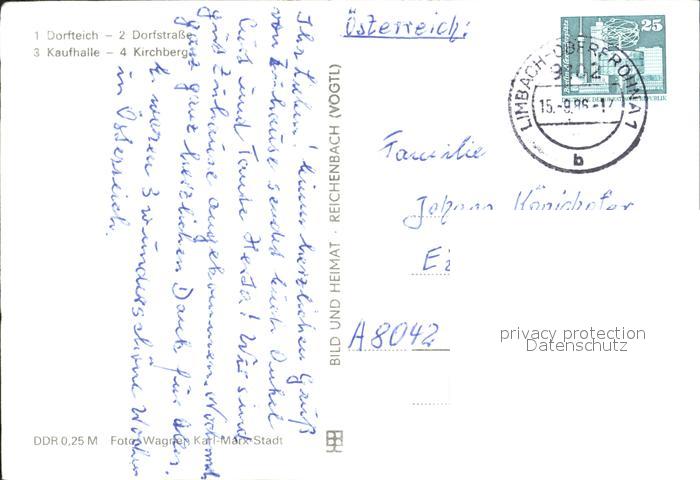 1 Dorfteich - 2 Dorfstraße
3 Kaufhalle - 4 Kirchberg
Ihr Lieben! Einen herzlichen Gruß
von Zuhause sendet Euch Onkel
Curt und Tante Herta! Wir sind
gut Zuhause angekommen. Nochmals
ganz ganz herzlichen Dank für Alles.
Es waren 3 wunderschöne Wochen
in Österreich.
DDR 0,25 M Foto: Wagner, Karl-Marx-Stadt
BILD UND HEIMAT · REICHENBACH (VOGTL)
Österreich:
25
LIMBACH-OBERFROHNA 1
9102
15.-9.86-17
b
Familie
Johann Königshofer
A 8042
privacy protection
Datenschutz